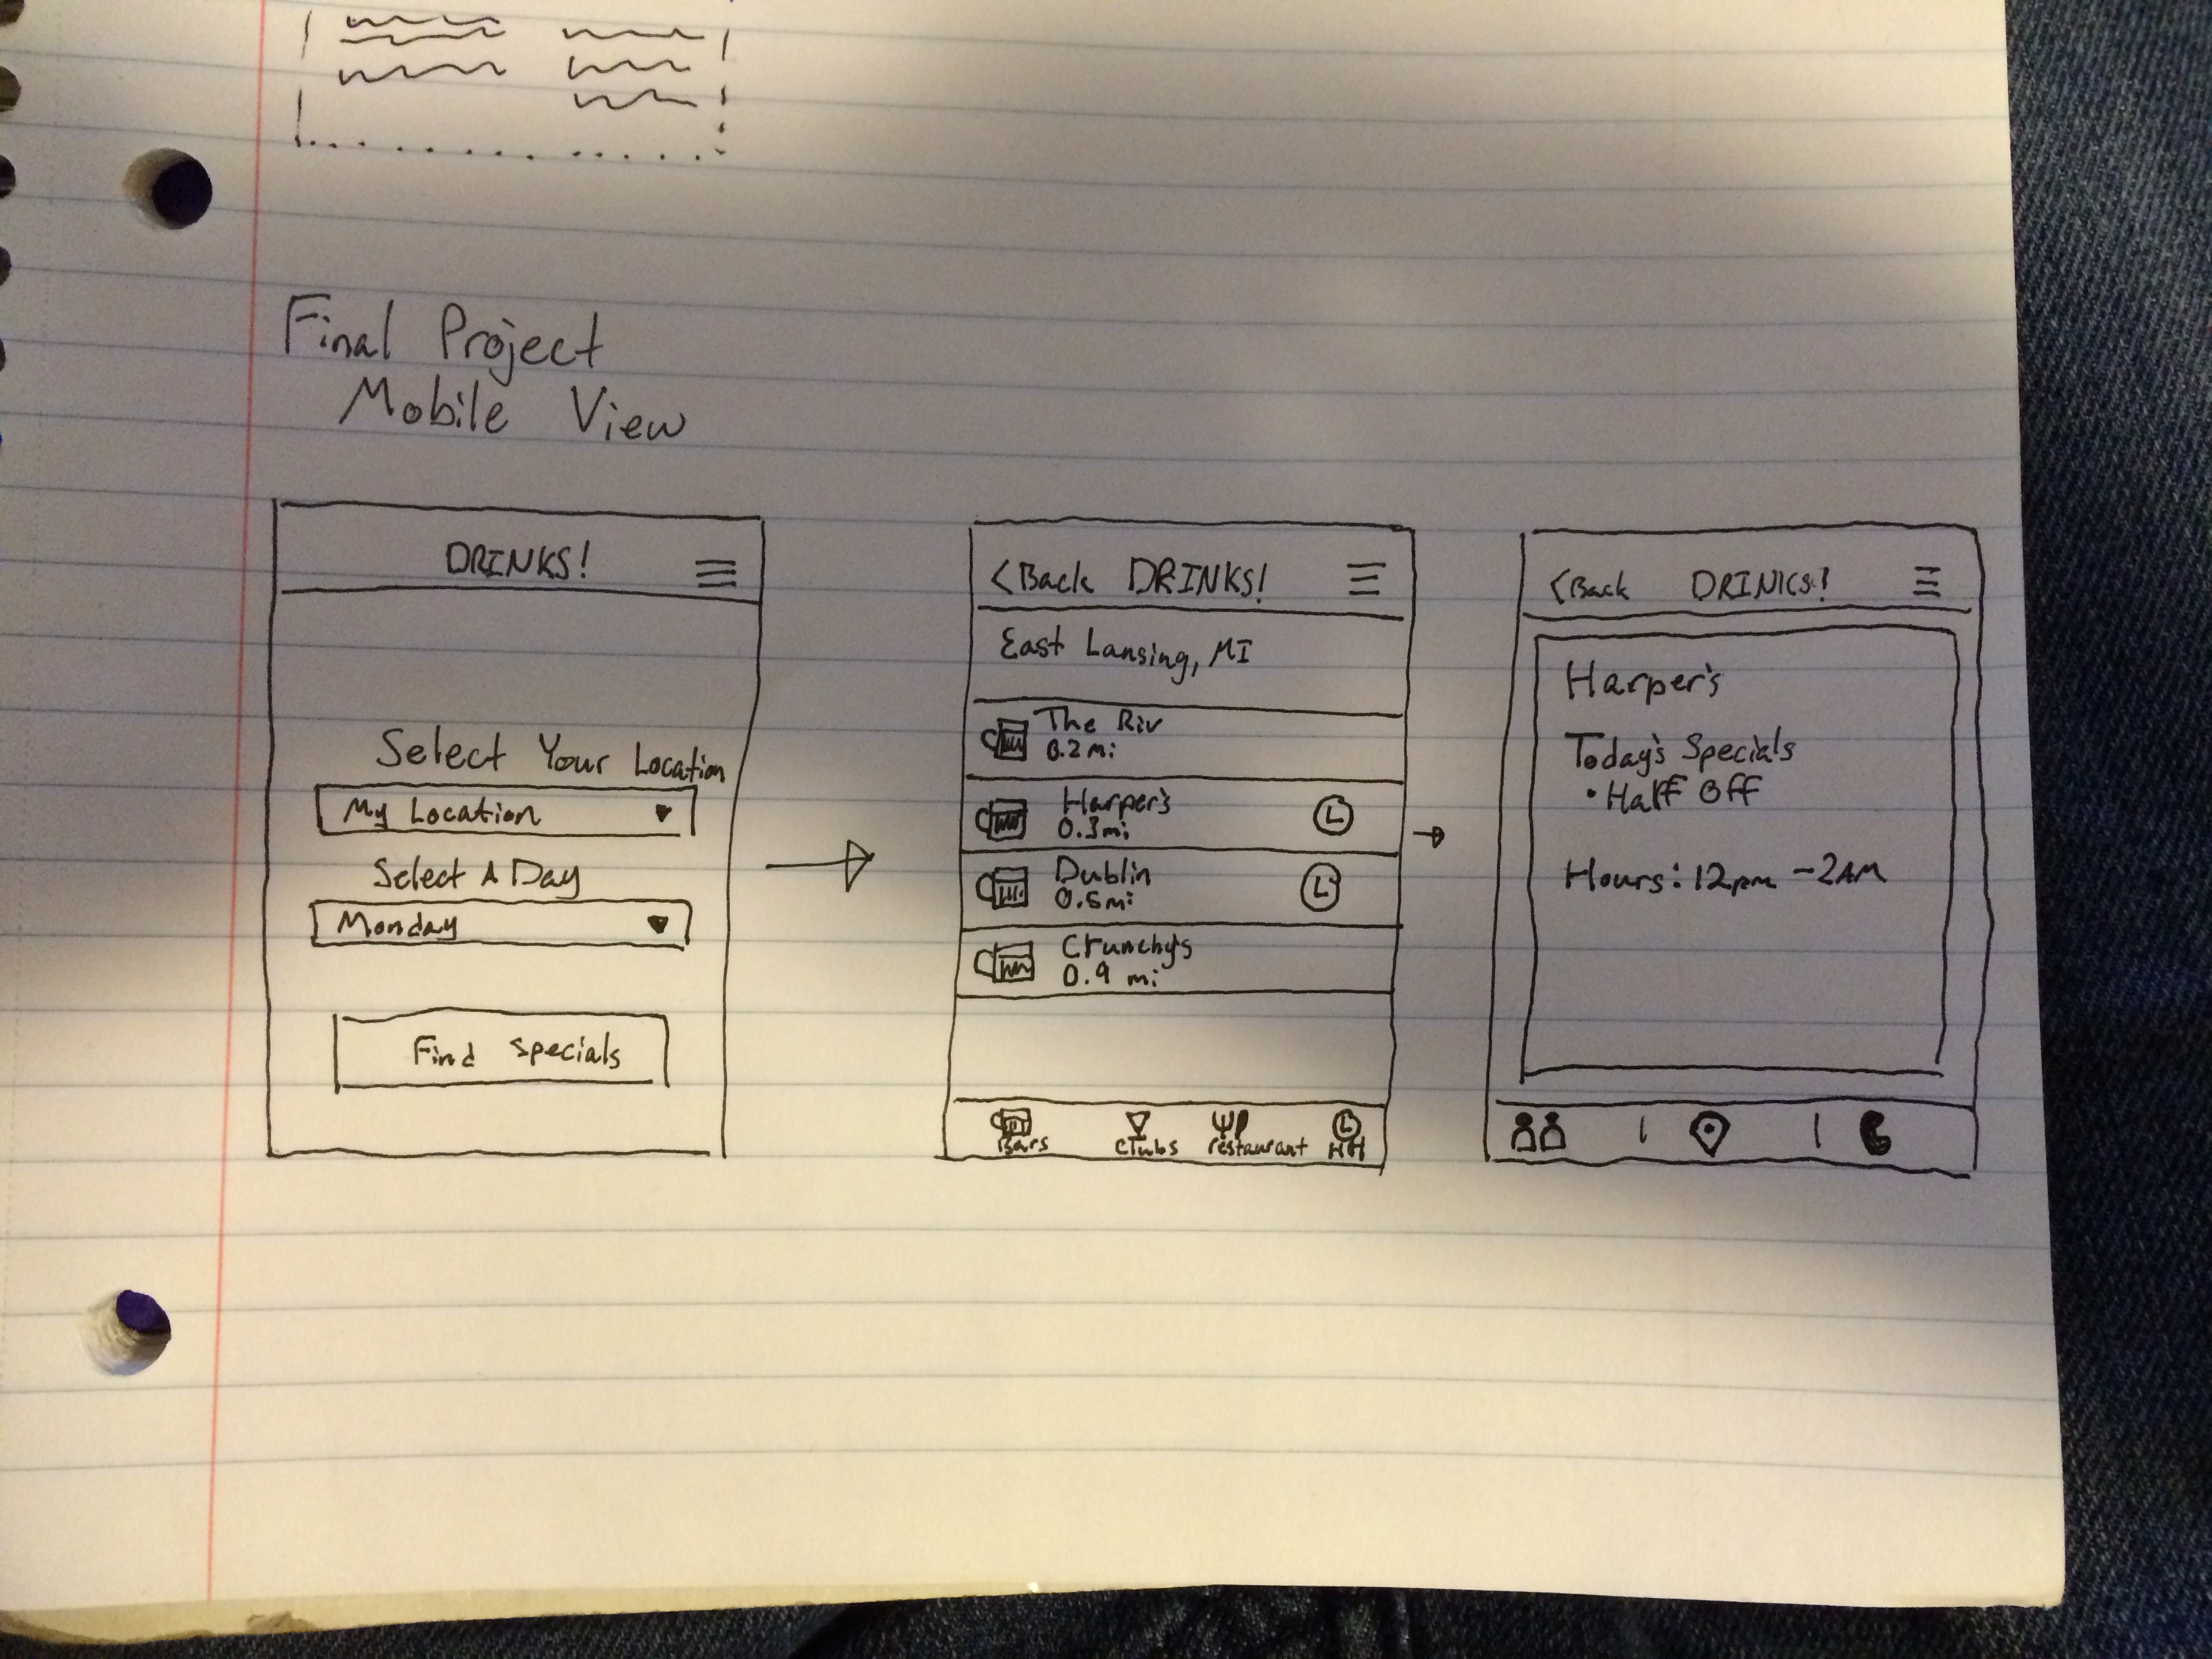 Final Project
Mobile View
DRINKS!
Select Your Location
My Location
Select A Day
Monday
Find specials
<Back DRINKS!
East Lansing, MI
The Riv
0.2 mi
Harper's
0.3mi
Dublin
0.5mi
Crunchy's
0.9 mi
Bars
Clubs
restaurant
HH
<Back DRINKS!
Harper's
Today's Specials
• Half Off
Hours: 12pm - 2AM